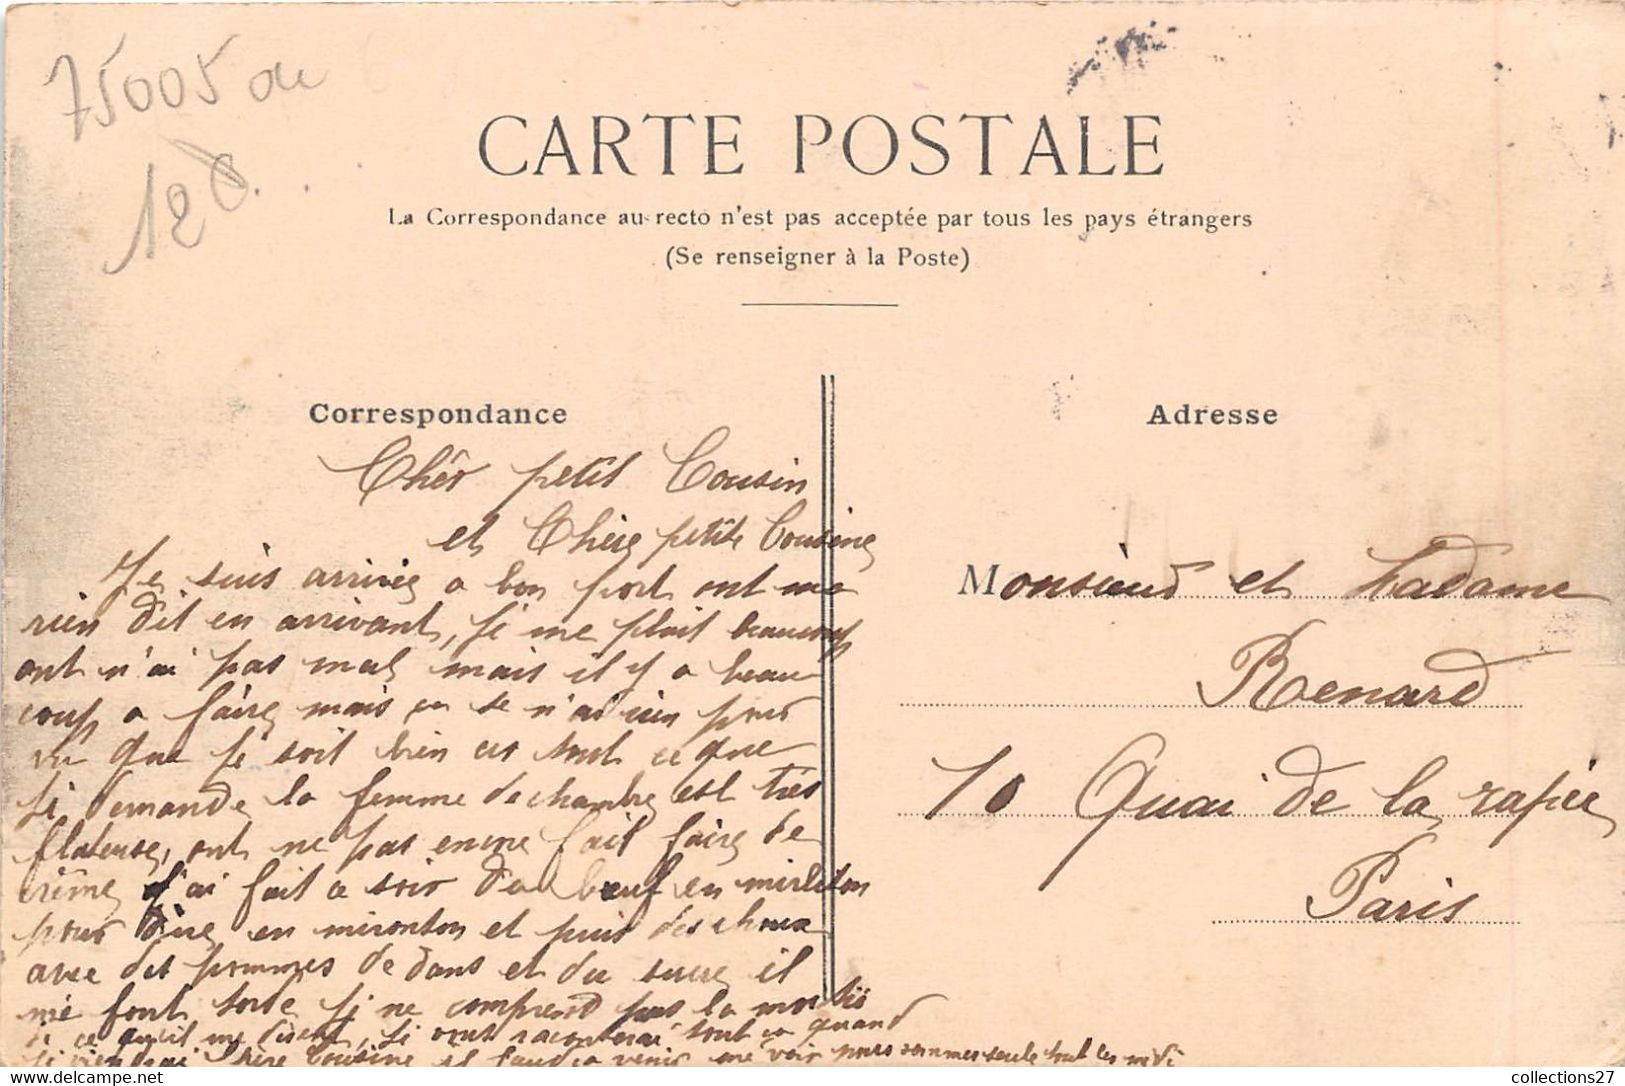 75005 ou
12
CARTE POSTALE
La Correspondance au recto n'est pas acceptée par tous les pays étrangers
(Se renseigner à la Poste)
Correspondance
Chèr petit Cousin
et Chère petite Cousine
Je suis arrivée a bon port ont ma
rien dit en arrivant, je me plait beaucoup
ont n'ai pas mal mais il y a beau
coup a faire mais ça se n'ai rien pour
vu que je soit bien ces tout ce que
je demande la femme de chambre est très
flateuse, ont ne pas encore fait faire de
crème j'ai fait a soir du bœuf en mirliton
pour dire en mironton et puis des choux
avec des pommes de dans et du sucre il
me font tort je ne comprend pas la moitié
de ce qu'il me disent, je vous raconterai tout ça quand
je viendrai Chère Cousine il faudra venir me voir nous sommes seule tout les midi
Adresse
Monsieur et Madame
Renard
10 Quai de la rapée
Paris
collections27